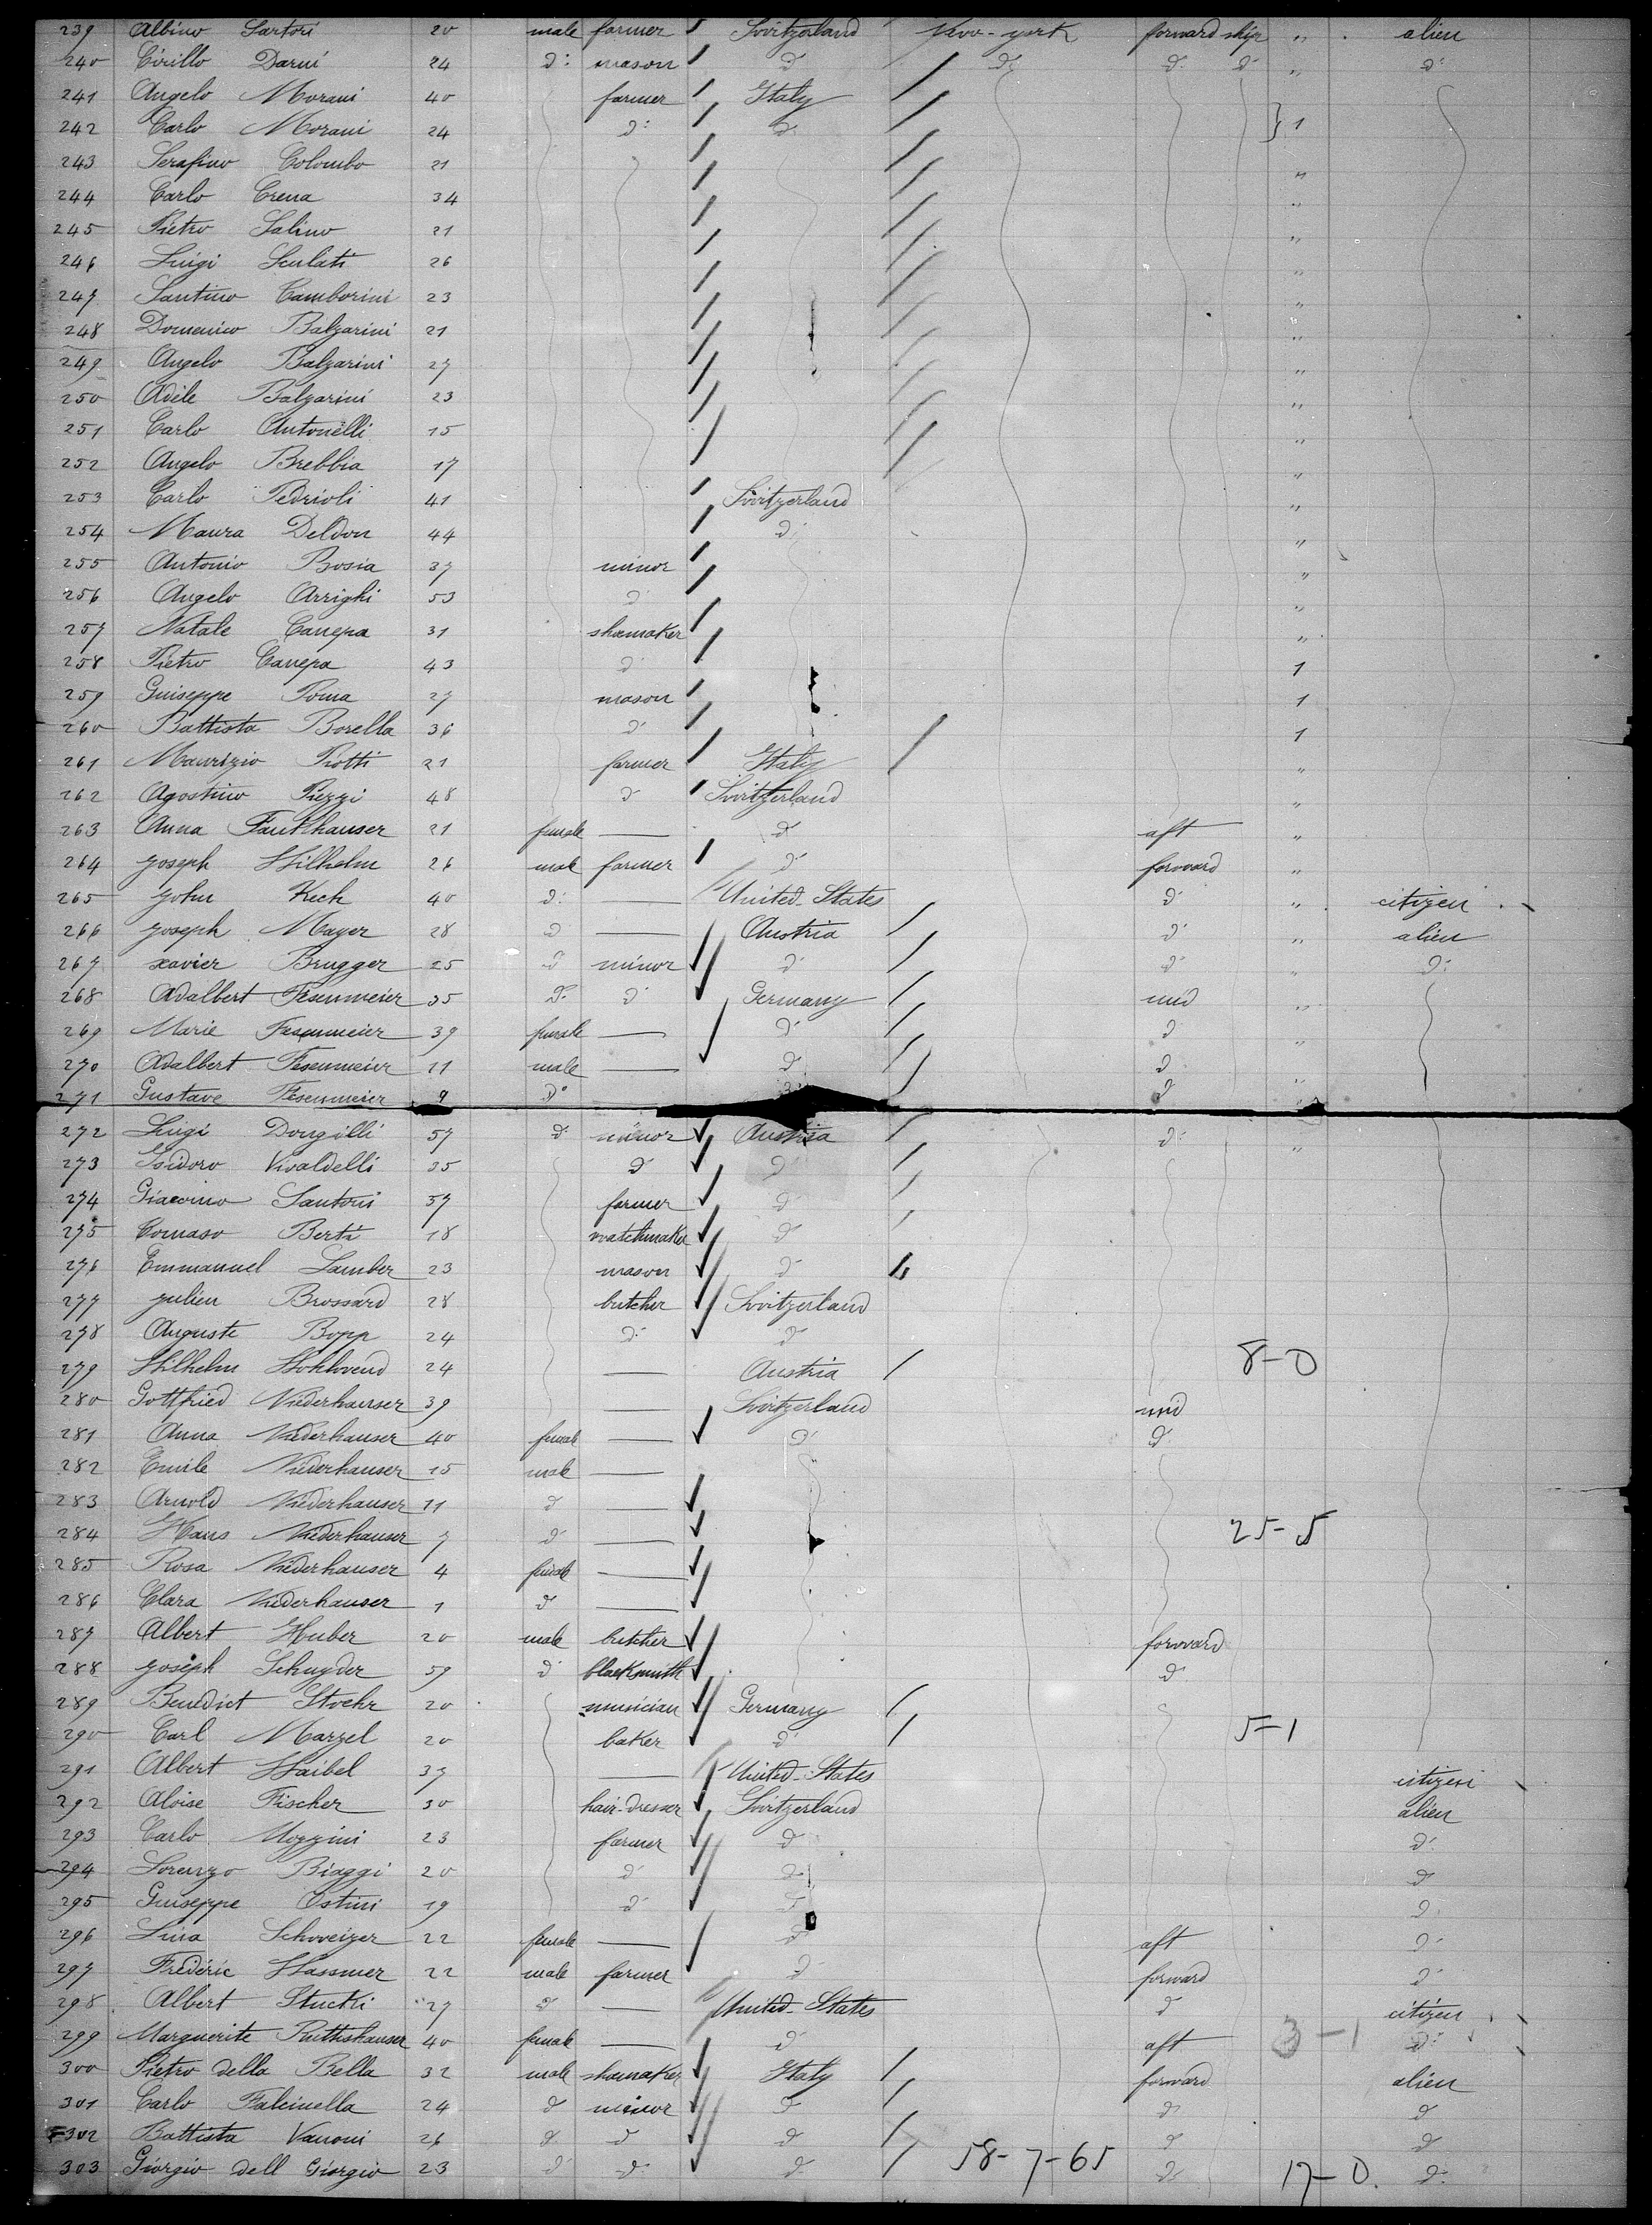 239 Albino Sartori 20 male farmer Switzerland New-york forward ship " alien
240 Cirillo Darni 24 d: mason d d: d. d " d:
241 Angelo Morani 40 farmer Italy
242 Carlo Morani 24 d: d. } 1
243 Serafino Colombo 21 "
244 Carlo Crena 34 "
245 Pietro Salino 21 "
246 Luigi Sculati 26 "
247 Santino Camborini 23 "
248 Domenico Balzarini 21 "
249 Angelo Balzarini 27 "
250 Adèle Balzarini 23 "
251 Carlo Antonelli 15 "
252 Angelo Brebbia 17 "
253 Carlo Pedrioli 41 Switzerland "
254 Maura Deldon 44 d "
255 Antonio Bosia 37 minor "
256 Angelo Arrighi 53 d "
257 Natale Canepa 31 shoemaker "
258 Pietro Canepa 43 d 1
259 Guiseppe Poma 27 mason 1
260 Battista Borella 36 d 1
261 Maurizio Piotti 21 farmer Italy "
262 Agostino Piezzi 48 d Switzerland "
263 Anna Fankhauser 21 female — d aft "
264 Joseph Wilhelm 26 male farmer d forward "
265 John Kech 40 d: — United-States d " citizen
266 Joseph Mayer 28 d — Austria d " alien
267 xavier Brugger 25 d minor d d " d:
268 Adalbert Fesenmeier 35 d. d Germany mid "
269 Marie Fesenmeier 39 female — d d "
270 Adalbert Fesenmeier 11 male — d d
271 Gustave Fesenmeier 9 d° d "
272 Luigi Dongilli 57 d minor Austria d: "
273 Isidoro Vivaldelli 35 d d
274 Giacomo Santoni 57 farmer d
275 Tomaso Berti 18 watchmaker d
276 Emmanuel Lamber 23 mason d
277 Julien Brossard 28 butcher Switzerland
278 Auguste Bopp 24 d: d
8-0
279 Wilhelm 24 — Austria
280 Gottfried Niederhauser 39 — Switzerland mid
281 Anna Niederhauser 40 female — d d
282 Emile Niederhauser 15 male —
283 Arnold Niederhauser 11 d —
284 Hans Niederhauser 7 d — 25-5
285 Rosa Niederhauser 4 female —
286 Clara Niederhauser 1 d —
287 Albert Huber 20 male butcher forward
288 Joseph Schnyder 59 d blacksmith d
289 Benedict Stoehr 20 musician Germany
290 Carl Marzel 20 baker d 5-1
291 Albert Waibel 37 — United-States citizen
292 Aloise Fischer 30 hair-dresser Switzerland alien
293 Carlo Mozzini 23 farmer d d
294 Lorenzo Biaggi 20 d d d
295 Guiseppe Ostini 19 d d d
296 Lina Schweizer 22 female — d aft d
297 Frédéric Wassmer 22 male farmer d forward d
298 Albert Stucki 27 d — United-States d citizen
299 Marguerite Ruthishauser 40 female — d aft 3-1 d:
300 Pietro della Bella 32 male shoemaker Italy forward alien
301 Carlo Falcinella 24 d minor d d d
302 Battista Vanoni 26 d d d d d
303 Giorgio dell Giorgio 23 d d d 58-7-65 d 17-0. d.